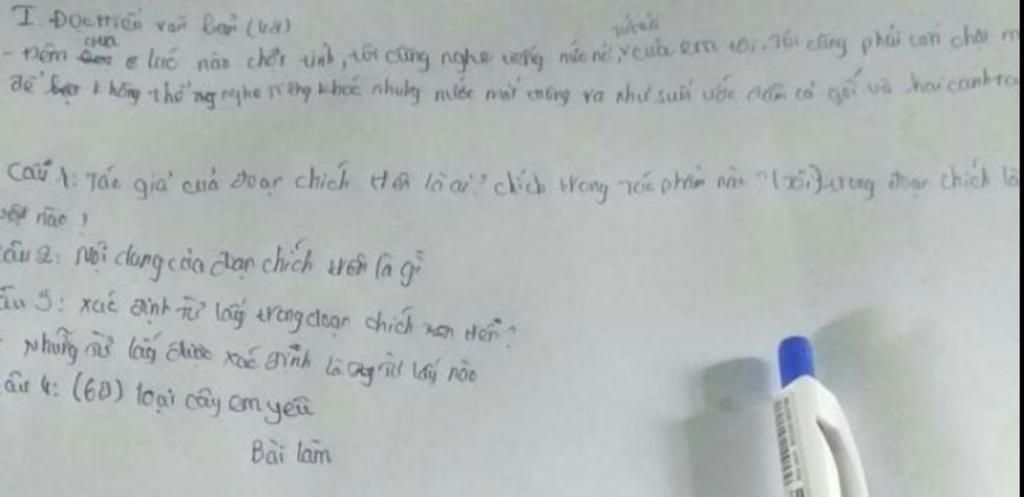 I. Đọc hiểu văn bản (4đ)
- Đêm qua lúc nào chợt tỉnh, tôi cũng nghe tiếng nức nở, tức tưởi của em tôi. Tôi cũng phải cắn chặt m
để không thổ ng nghe tiếng khóc nhưng nước mắt cứ tuông ra như suối ướt đẫm cả gối và hai cánh ta
Câu 1: Tác giả của đoạn chích trên là ai? chích trong tác phẩm nào "(tôi)" trong đoạn chích là
vật nào?
Câu 2: Nội dung của đoạn chích trên là gì
Câu 3: xác định từ láy trong đoạn chích trên?
Những từ láy được xác định là từ láy nào
Câu 4: (6Đ) loại cây em yêu
Bài làm